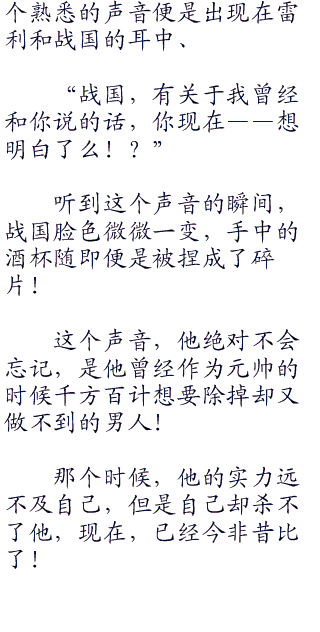 个熟悉的声音便是出现在雷
利和战国的耳中、
“战国，有关于我曾经
和你说的话，你现在——想
明白了么！？”
听到这个声音的瞬间，
战国脸色微微一变，手中的
酒杯随即便是被捏成了碎
片！
这个声音，他绝对不会
忘记，是他曾经作为元帅的
时候千方百计想要除掉却又
做不到的男人！
那个时候，他的实力远
不及自己，但是自己却杀不
了他，现在，已经今非昔比
了！